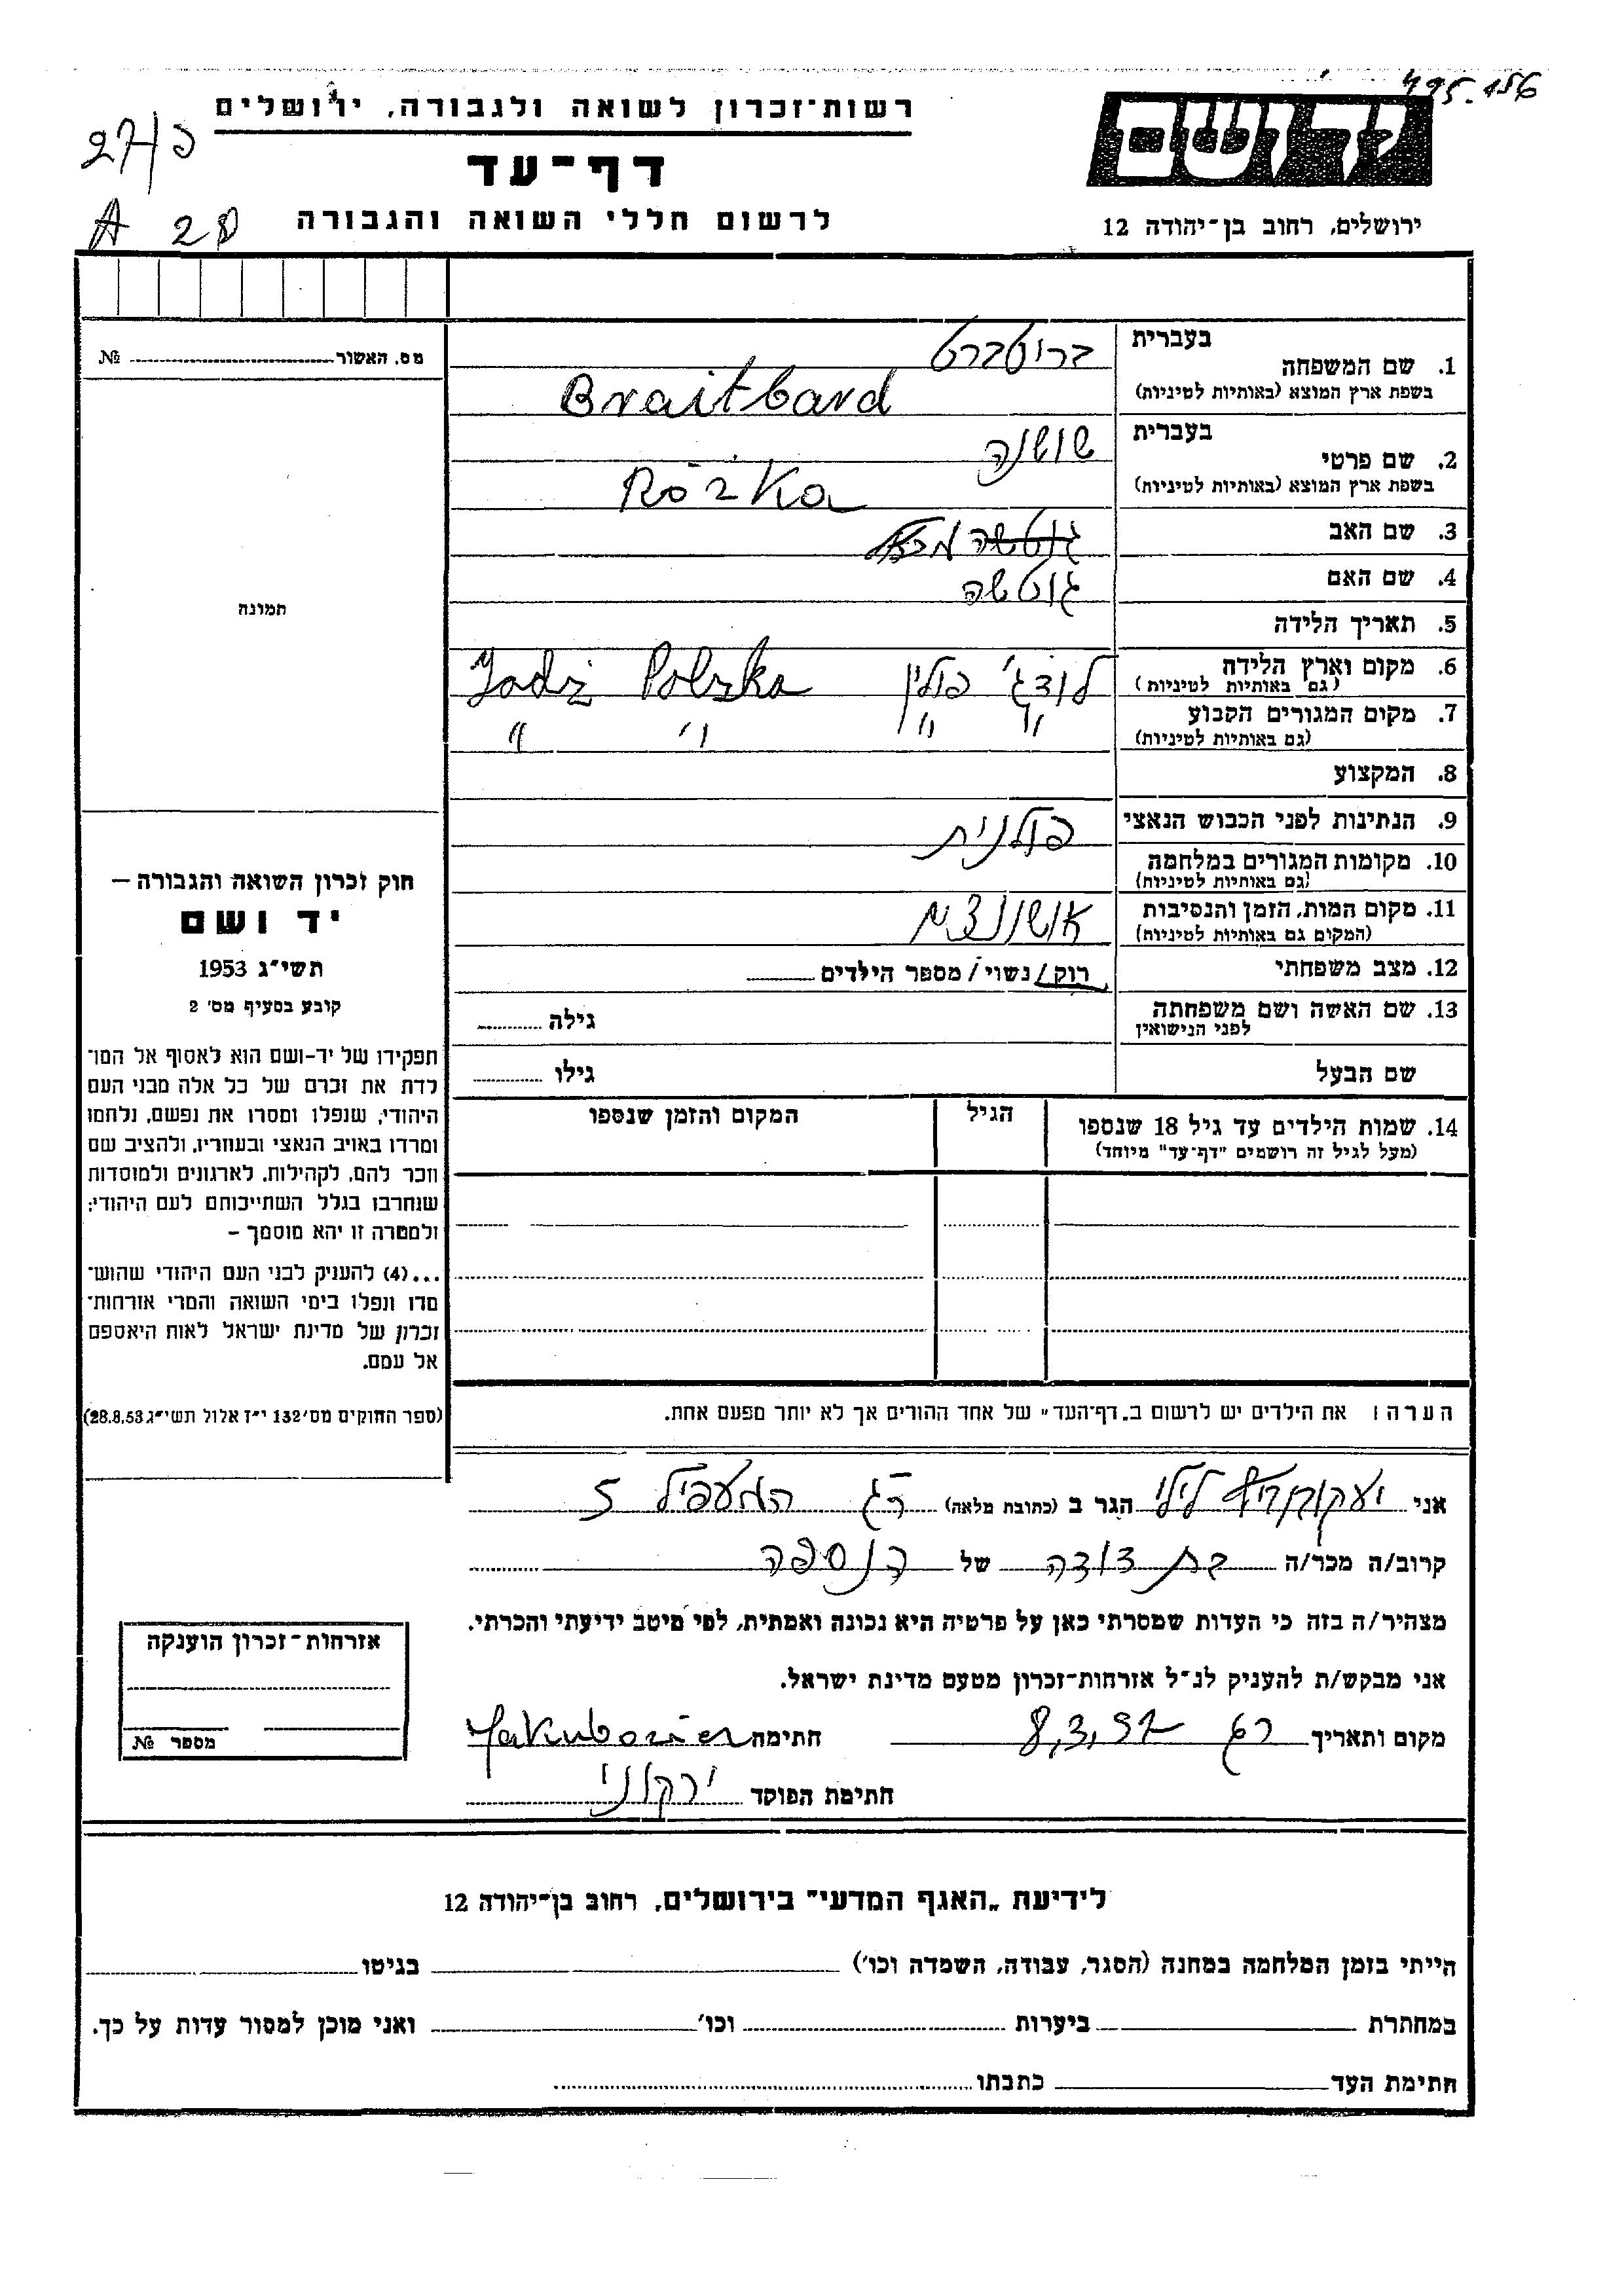 495.156
רשות־זכרון לשואה ולגבורה, ירושלים
27/כ
דף־עד
A 28
לרשום חללי השואה והגבורה
ידושם
ירושלים, רחוב בן־יהודה 12
מס. האשור № 
תמונה
1. שם המשפחה
בעברית
ברוטברט
בשפת ארץ המוצא (באותיות לטיניות)
Braitbard
2. שם פרטי
בעברית
שושנה
בשפת ארץ המוצא (באותיות לטיניות)
Różka
3. שם האב
גוטשה
4. שם האם
גוטשה
5. תאריך הלידה
6. מקום וארץ הלידה
(גם באותיות לטיניות)
לודג' פולין Polzka
7. מקום המגורים הקבוע
(גם באותיות לטיניות)
" " " "
8. המקצוע
9. הנתינות לפני הכבוש הנאצי פולנית
10. מקומות המגורים במלחמה
(גם באותיות לטיניות)
11. מקום המות, הזמן והנסיבות
(המקום גם באותיות לטיניות)
אושוויץ
12. מצב משפחתי רוק/נשוי/מספר הילדים
13. שם האשה ושם משפחתה
לפני הנישואין
גילה
שם הבעל גילו
14. שמות הילדים עד גיל 18 שנספו
(מעל לגיל זה רושמים "דף־עד" מיוחד)
הגיל
המקום והזמן שנספו
הערה: את הילדים יש לרשום ב„דף־העד" של אחד ההורים אך לא יותר מפעם אחת.
חוק זכרון השואה והגבורה —
יד ושם
תשי"ג 1953
קובע בסעיף מס' 2
תפקידו של יד-ושם הוא לאסוף אל המו־
לדת את זכרם של כל אלה מבני העם
היהודי, שנפלו ומסרו את נפשם, נלחמו
ומרדו באויב הנאצי ובעוזריו, ולהציב שם
וזכר להם, לקהילות, לארגונים ולמוסדות
שנחרבו בגלל השתייכותם לעם היהודי;
ולמטרה זו יהא מוסמך –
...(4) להעניק לבני העם היהודי שהוש־
מדו ונפלו בימי השואה והמרי אזרחות־
זכרון של מדינת ישראל לאות היאספם
אל עמם.
(ספר החוקים מס' 132 י"ז אלול תשי"ג 28.8.53)
אני לילי הגר ב (כתובת מלאה) רג המעפיל 5
קרוב/ה מכר/ה בת דודה של הנספה
מצהיר/ה בזה כי העדות שמסרתי כאן על פרטיה היא נכונה ואמתית, לפי מיטב ידיעתי והכרתי.
אני מבקש/ת להעניק לנ"ל אזרחות-זכרון מטעם מדינת ישראל.
מקום ותאריך רג 8.3.57 חתימה
חתימת הפוקד ירקוני
אזרחות־זכרון הוענקה
מספר №
לידיעת „האגף המדעי" בירושלים, רחוב בן־יהודה 12
הייתי בזמן המלחמה במחנה (הסגר, עבודה, השמדה וכו') בגיטו
במחתרת ביערות וכו' ואני מוכן למסור עדות על כך.
חתימת העד כתבתו